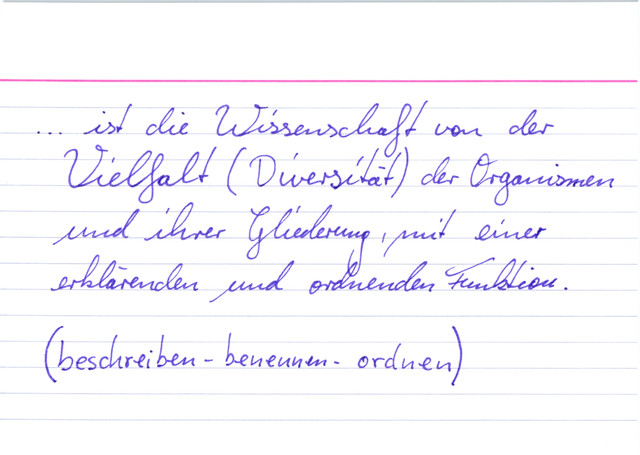 ... ist die Wissenschaft von der
Vielfalt (Diversität) der Organismen
und ihrer Gliederung, mit einer
erklärenden und ordnenden Funktion.
(beschreiben - benennen - ordnen)